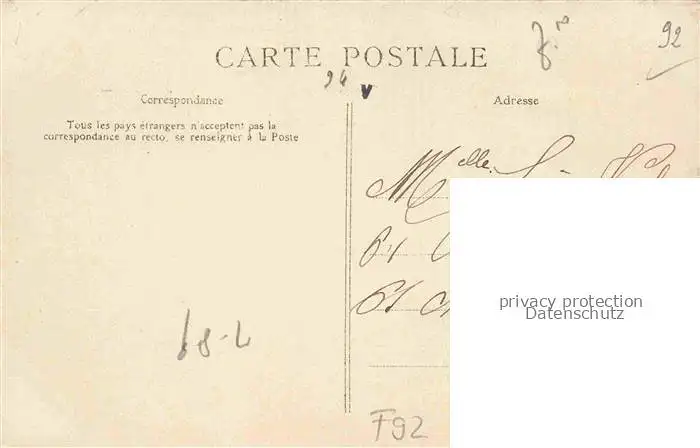 92
CARTE POSTALE
94
v
Correspondance
Adresse
Tous les pays étrangers n'acceptent pas la
correspondance au recto, se renseigner à la Poste
Melle
61
61
privacy protection
Datenschutz
68-L
F92